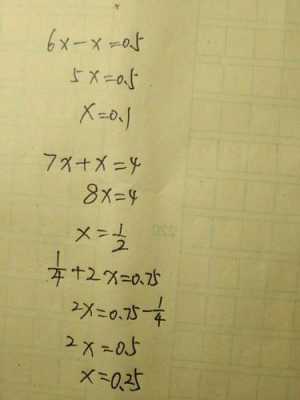 6x-x=0.5
5x=0.5
x=0.1
7x+x=4
8x=4
x=1/2
1/4+2x=0.75
2x=0.75-1/4
2x=0.5
x=0.25